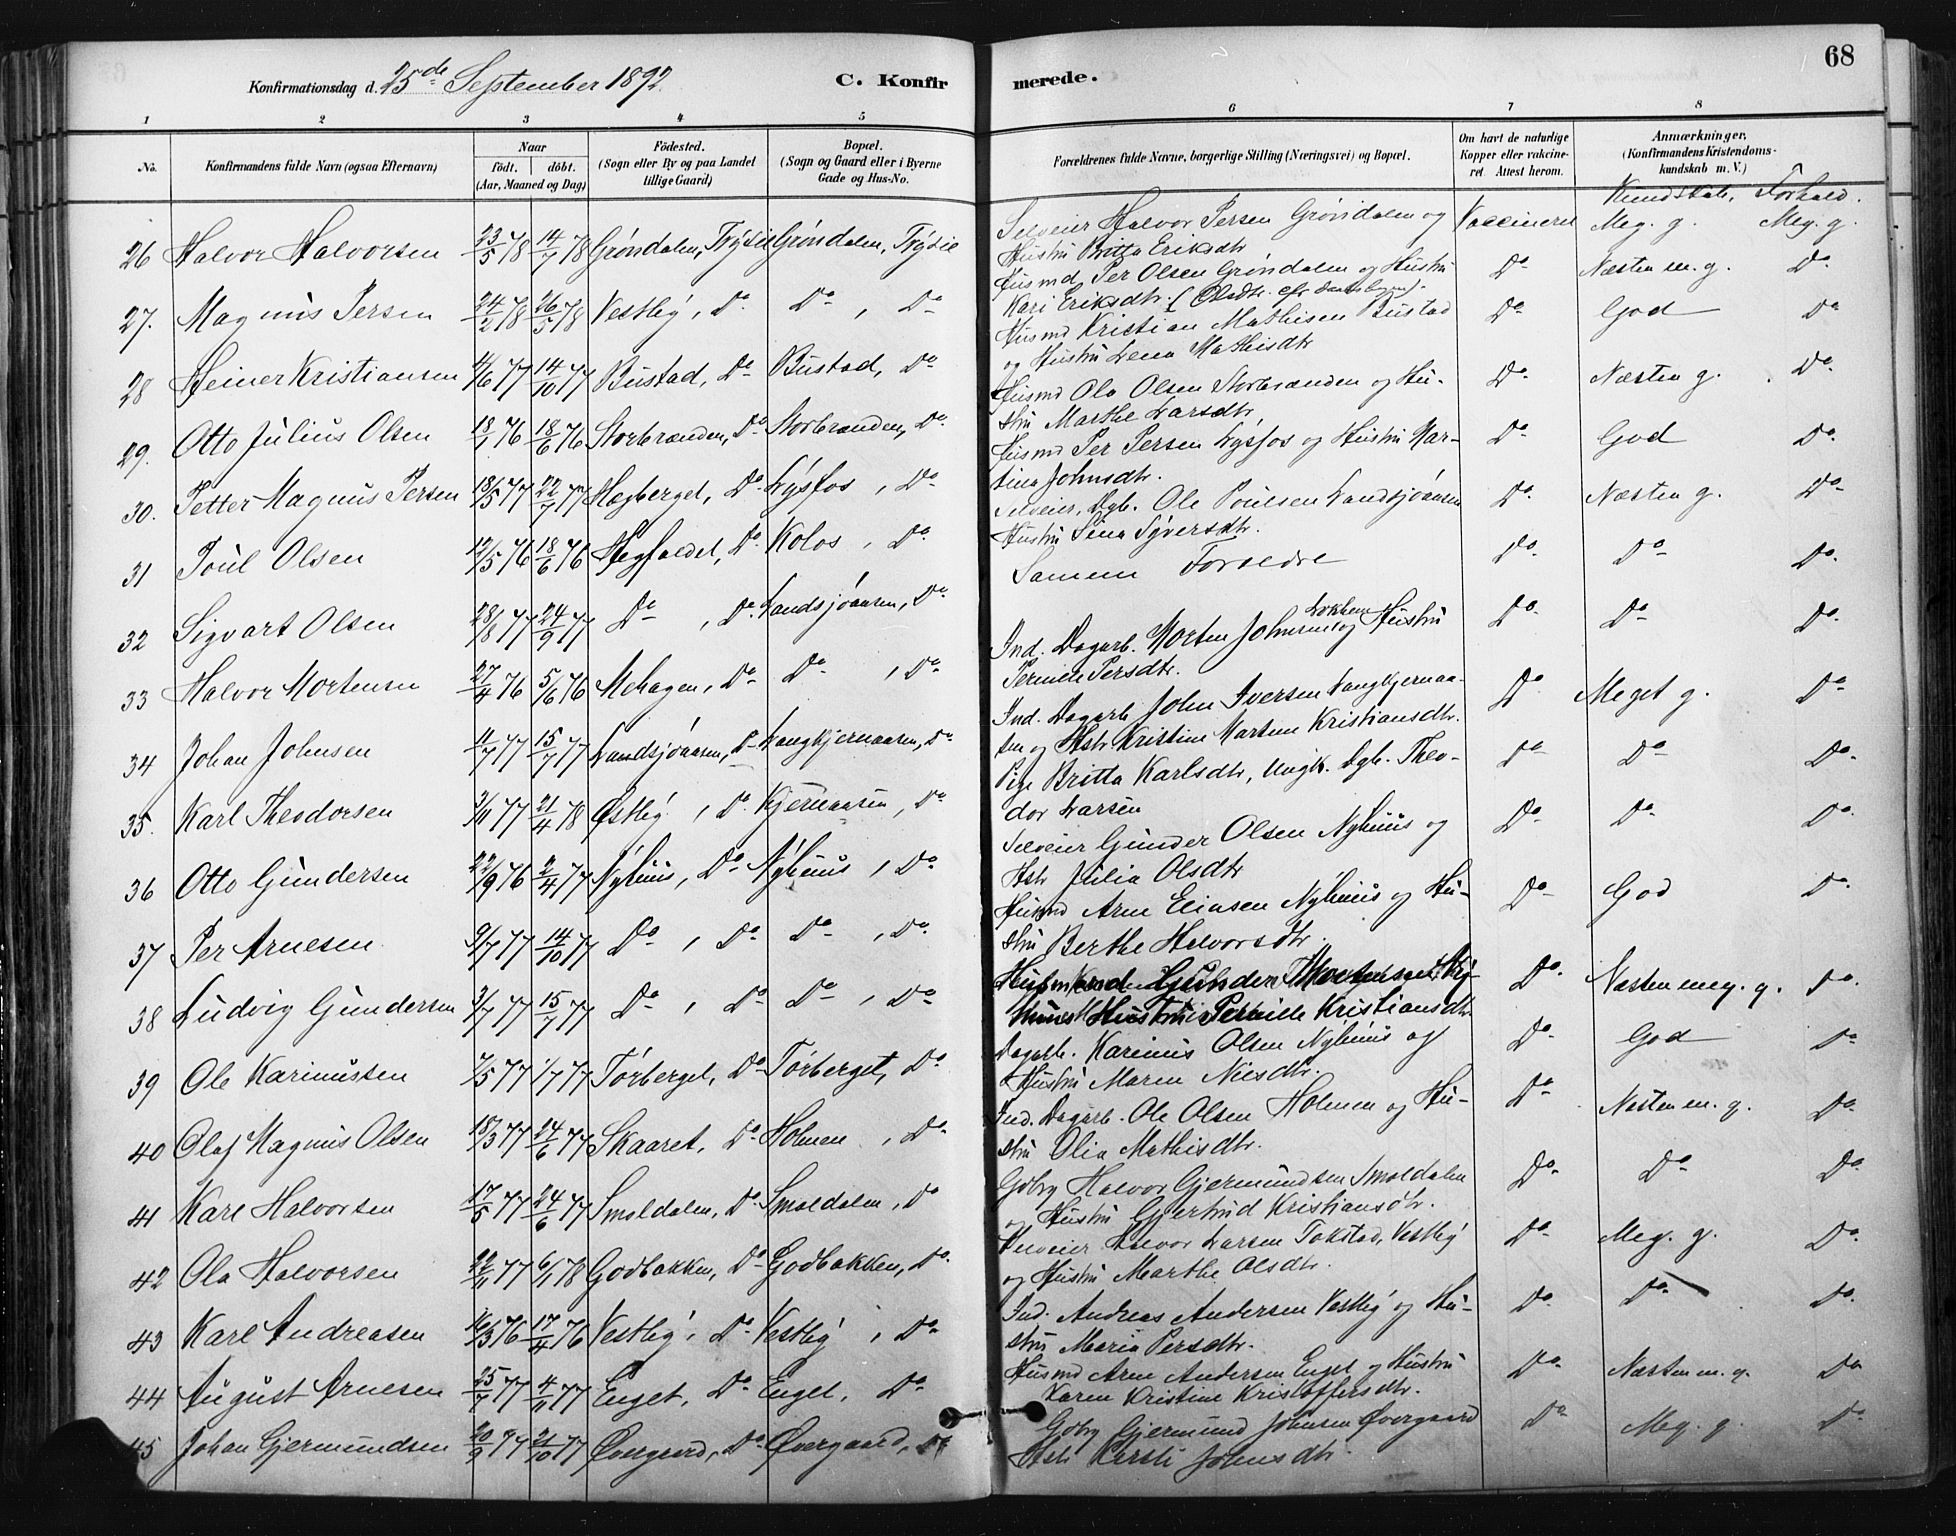 68
Konfirmationsdag d. 25de September 1892. C. Konfirmerede.
1 2 3 4 5 6 7 8
No. Konfirmandens fulde Navn (ogsaa Efternavn) Naar født. døbt. (Aar, Maaned og Dag) Fødested. (Sogn eller By og paa Landet tillige Gaard) Bopæl. (Sogn og Gaard eller i Byerne Gade og Hus-No. Forældrenes fulde Navne, borgerlige Stilling (Næringsvei) og Bopæl. Om havt de naturlige Kopper eller vaccineret. Attest herom. Anmærkninger, (Konfirmandens Kristendomskundskab m. V.)
Kundskab, Forhold.
26 Halvor Halvorsen 23/5 78 14/7 78 Grøndalen, Trysil Grøndalen, Trysil Selveier Halvor Persen Grøndalen og Vaccineret Meg. g. Meg. g.
Hustru Britta Eriksdtr
27. Magnus Persen 24/2 78 26/5 78 Vestby, Do Do, Do Husmd Per Olsen Grøndalen og Hustru Do Næsten m. g. Do
Kari Eriksdtr. (Olsdtr. cfr
28 Heiner Kristiansen 4/6 77 14/10 77 Bustad, Do Bustad, Do Husmd Kristian Mathisen Bustad Do God Do
og Hustru Lena Mathisdtr
29. Otto Julius Olsen 18/1 76 18/6 76 Storbrænden, Do Storbrænden, Do Husmd Ola Olsen Storbrænden og Hu- Do Næsten g. Do
stru Marthe Larsdtr,
30. Petter Magnus Persen 18/5 77 22/7 77 Hegberget, Do Lysfos, Do Husmd Per Persen Lysfos og Hustru Mar- Do God Do
tina Johnsdtr.
31 Poul Olsen 12/5 76 18/6 76 Do Kolos, Do Selveier, Dgb. Ole Poulsen Landsjøaasen Do Næsten g. Do
Hustru Sina Syversdtr.
32 Sigvart Olsen 28/8 77 24/9 77 Do, Do Landsjøaasen, Do Samme Forældre Do Do Do
33 Halvor Mortensen 27/4 76 5/6 76 Mehagen, Do Do, Do Ind. Dagarb. Morten Johnsen og Hustru Do Do Do
Pernille Persdtr.
34 Johan Johnsen 11/7 77 15/7 77 Landsjøaasen, Do Langkjernaasen, Do Ind. Dagarb John Iversen Langkjernaa- Do Meget g. Do
sen og Hstr Kristine Martine Kristiansdtr.
35. Karl Theodorsen 3/11 77 21/4 78 Østby, Do Kjernaasen, Do Pige Britta Karlsdtr, Ungk. Dgb. Theo- Do Do Do
dor Larsen
36 Otto Gundersen 22/9 76 2/4 77 Nyhuus, Do Nyhuus, Do Selveier Gunder Olsen Nyhuus og Do Do Do
Hstr Julia Olsdtr
37 Per Arnesen 9/7 77 14/10 77 Do, Do Do, Do Husmd Arne Eliasen Nyhuus og Hu- Do God Do
stru Berthe Halvorsdtr.
38 Ludvig Gundersen 3/7 77 15/7 77 Do, Do Do, Do Husmand Gunder Mortensen Ny- Do Næsten meg. g. Do
huus Hustru Pernille Kristiansdtr
39 Ole Karinussen 7/5 77 1/7 77 Tørberget, Do Tørberget, Do Dagarb. Karinus Olsen Nyhuus og Do God Do
Hustru Maren Nilsdtr.
40 Olaf Magnus Olsen 18/3 77 24/6 77 Skaaret, Do Holmen, Do Ind. Dagarb. Ole Olsen Holmen og Hu- Do Næsten m. g. Do
stru Olia Mathisdtr.
41 Karl Halvorsen 17/5 77 24/6 77 Smoldalen, Do Smoldalen, Do Gdbr Halvor Gjermundsen Smoldalen Do Do Do
og Hustru Gjertrud Kristiansdtr.
42 Ola Halvorsen 22/11 77 6/1 78 Godbakken, Do Godbakken, Do Selveier Halvor Larsen Tokstad, Vestby Do Meg. g. Do
og Hustru Marthe Olsdtr.
43 Karl Andreasen 16/3 76 17/4 76 Vestby, Do Vestby, Do Ind. Andreas Andersen Vestby og Hu- Do Do Do
stru Maria Persdtr.
44 August Arnesen 25/7 77 4/11 77 Enget, Do Enget, Do Husmd Arne Andersen Enget og Hustru Do Næsten m. g. Do
Karen Kristine Kristoffersdtr.
45 Johan Gjermundsen 20/9 77 21/10 77 Øvergaard, Do Øvergaard, Do Gdbr Gjermund Johnsen Øvergaard Do Meg. g. Do
Hstr Kersti Johnsdtr.